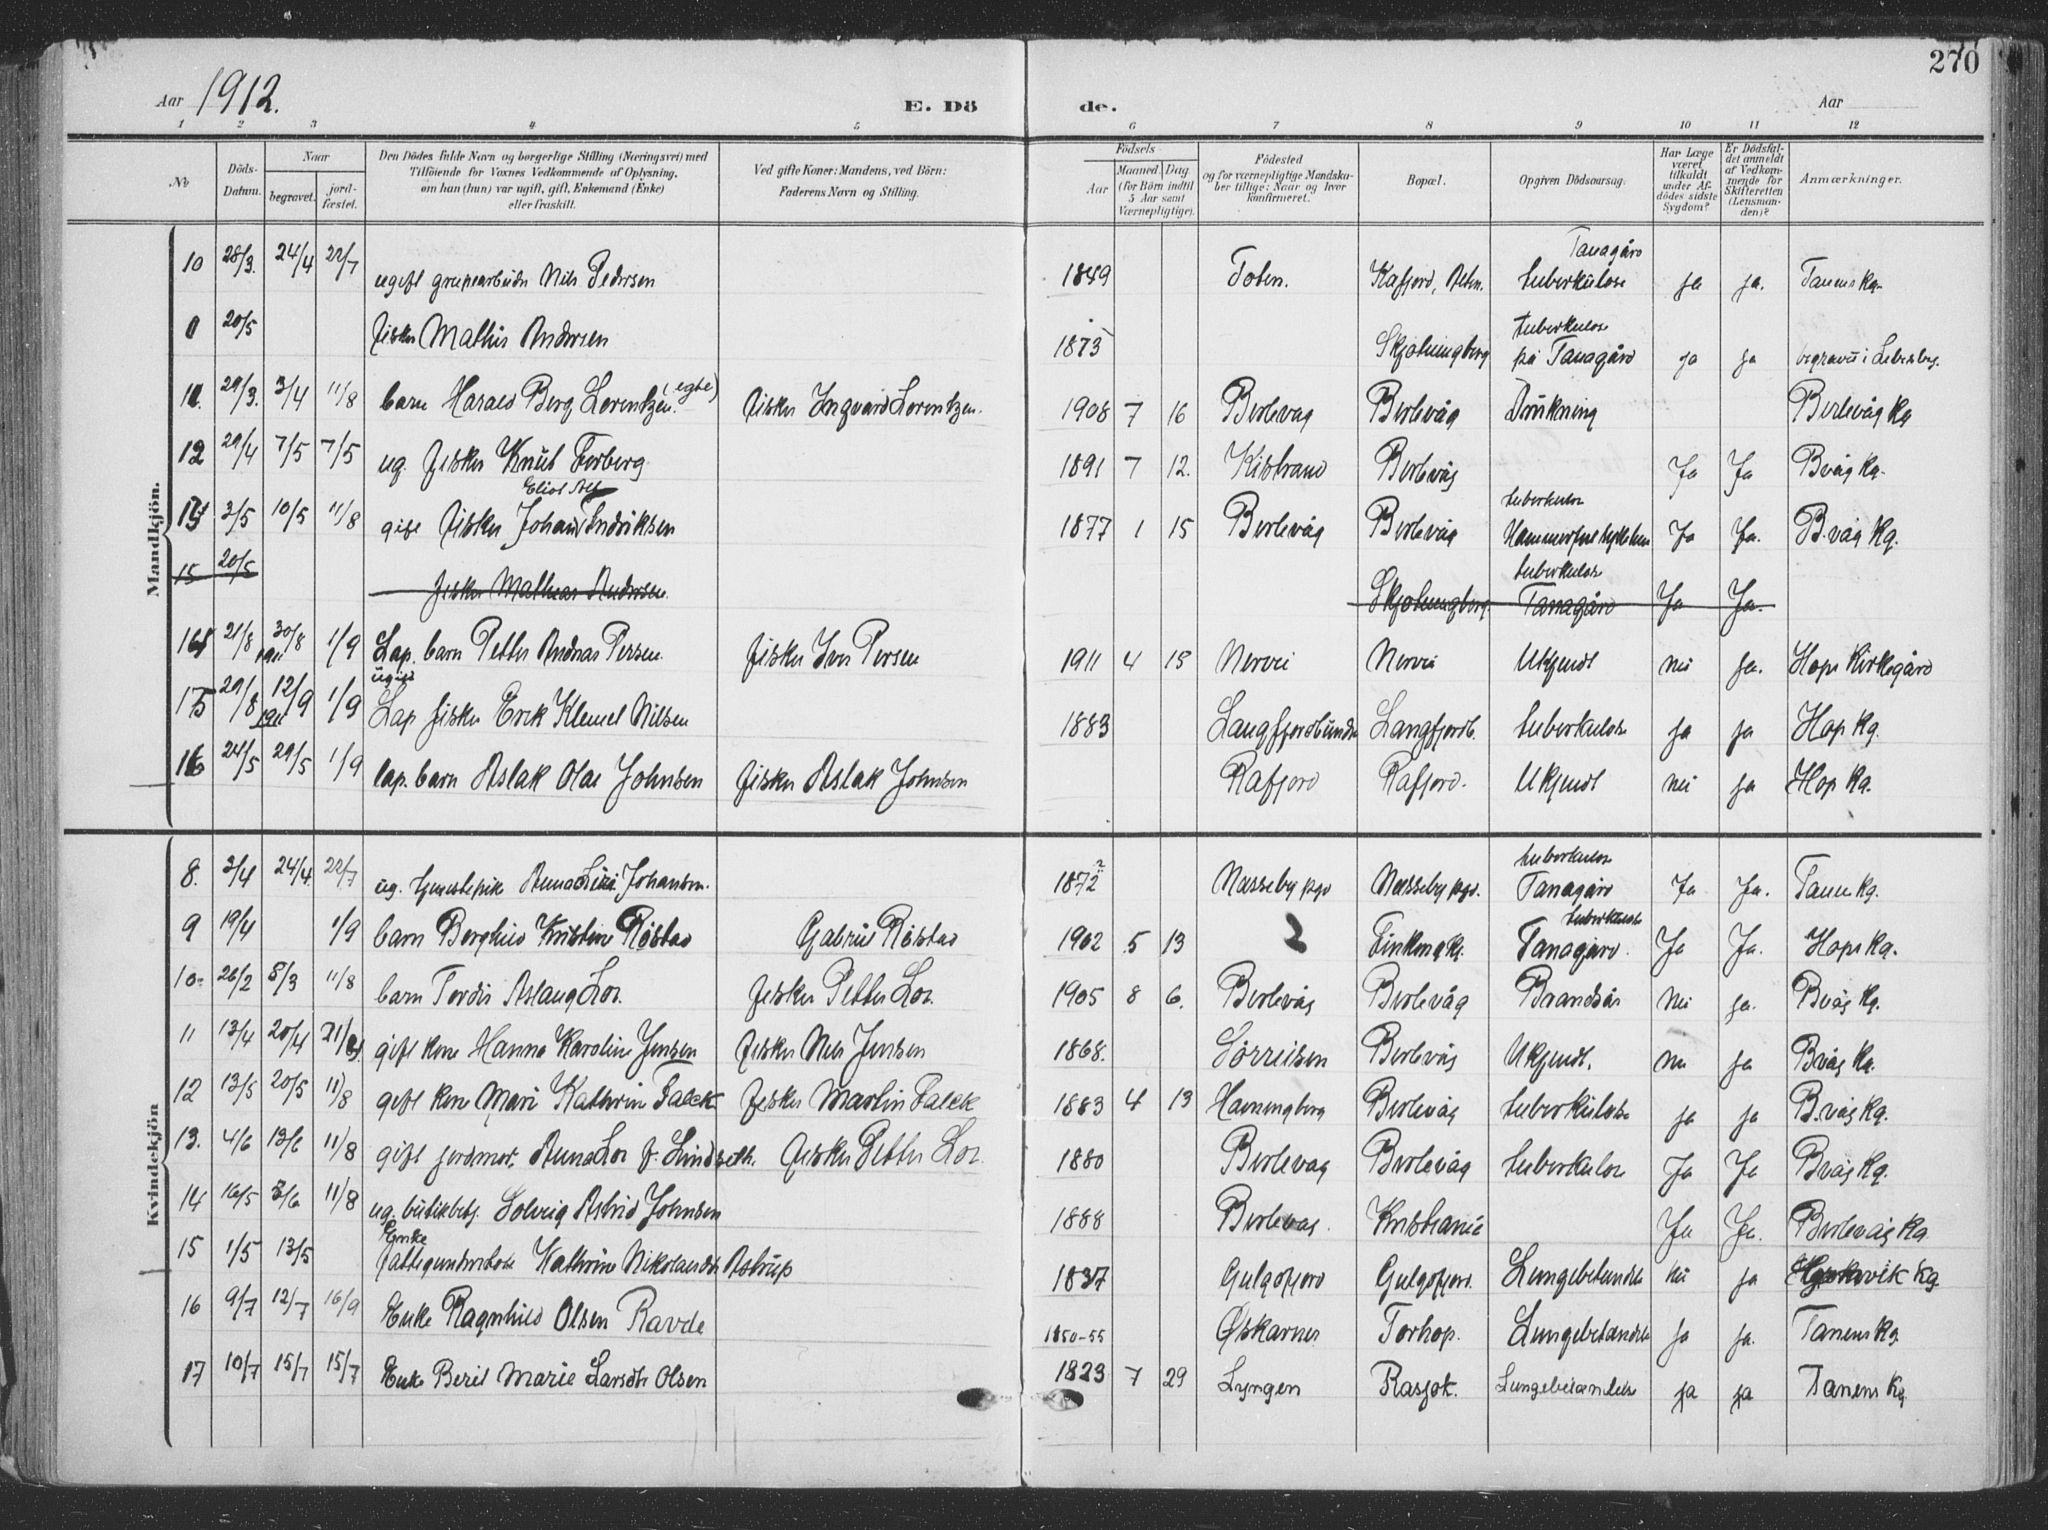 270
Aar 1912.
E. Dö
de.
Aar
1 2 3 4 5 6 7 8 9 10 11 12
No
Döds-Datum.
Naar
begravet.
jord-fæstet.
Den Dödes fulde Navn og borgerlige Stilling (Næringsvei) med
Tilföiende for Voxnes Vedkommende af Oplysning,
om han (hun) var ugift, gift, Enkemand (Enke)
eller fraskilt.
Ved gifte Koner: Mandens, ved Börn:
Faderens Navn og Stilling.
Födsels
Aar
Maaned. Dag
(for Börn indtil
5 Aar samt
Værnepligtige).
Födested
og for værnepligtige Mandska-
ber tillige: Naar og hvor
konfirmeret.
Bopæl.
Opgiven Dödsaarsag.
Har Læge
været
tilkaldt
under Af-
dödes sidste
Sygdom?
Er Dödsfal-
det anmeldt
af Vedkom-
mende for
Skifteretten
(Lensman-
den)?
Anmærkninger.
Mandkjön.
10 28/3. 24/4 22/7 ugift grubearbeider Nils Pedersen 1849 Toten. Kafjord, Alten. Tanagård tuberkulose ja ja. Tanens kg.
20/5 fisker Mathis Andersen 1873 Skjotningberg tuberkulose på Tanagård ja ja begravet i Lebesby.
11. 29/3. 3/4 11/8 barn Harald Berg Lorentzen (egte) fisker Ingvard Lorentzen. 1908 7 16 Berlevag Berlevåg Drukning Berlevåg kg
12 29/4 7/5 7/5 ug. fisker Knut Forberg 1891 7 12. Kistrand Berlevåg Ja Ja Bvåg kg.
3/5 10/5 11/8 gift fisker Johan Fredriksen 1877 1 15 Berlevåg Berlevåg tuberkulose Hammerfest sykehus Ja Ja. B.våg kg.
15 20/5 fisker Mathias Andersen. Skjotningberg. tuberkulose Tanagård Ja Ja.
21/8 30/8 1911 1/9 Lap. barn Petter Andras Persen. fisker Iver Persen 1911 4 15 Nervei Nervei Ukjendt nei ja. Hops Kirkegård
29/8 12/9 1911 1/9 ugift Lap fisker Erik Klemet Nilsen 1883 Langfjordbunden Langfjordb. tuberkulose ja ja Hop kg.
16 24/5 29/5 1/9 lap. barn Aslak Olai Johnsen fisker Aslak Johnsen Rafjord Rafjord. Ukjendt nei ja Hop kg.
Kvindekjön
8. 3/4 24/4. 22/7 ug. tjenestepike Anna Johansen. 1872 Næsseby pgd Næsseby pgd. tuberkulose Tanagård Ja Ja. Tanen kg.
9 19/4 1/9 barn Borghild Kristine Røstad Gabriel Røstad 1902 5 13 ? Finkong kg. tuberkulose Tanagård. Ja Ja. Hops kg.
10 26/2 8/3 11/8 barn Tordis Aslaug Lor. fisker Petter Lor. 1905 8 6. Berlevåg Berlevåg Brandsår Nei ja. Bvåg kg.
11 13/4 20/4 gift kone Hanna Karoline Jensen fisker Nils Jensen 1868. Sørreisen Berlevåg Ukjendt. nei ja Bvåg kg.
12 13/5 20/5 11/8 gift kone Mari Kathrine Falck fisker Martin Falck 1883 4 13 Havningberg Berlevåg tuberkulose ja ja B.våg kg.
13. 4/6 13/6 11/8 gift jordmor. Anna Lor f. Lindseth. fisker Petter Lor. 1880 Berlevag Berlevåg tuberkulose Ja Ja Bvåg kg.
14 16/5 3/6 11/8 ug. butikbetj. Solveig Astrid Johnsen 1888 Berlevag. Kristiania Ja Ja. Berlevåg kg.
15 1/5 13/5 Enke fattigunderstøt. Kathrine Nikolaisdtr Astrup 1837 Gulgofjord Gulgofjord. Lungebetændelse nei ja kg
16 9/7 12/7 16/9 Enke Ragnhild Olsen Ravde 1850-55 Øskarnes Torhop. Lungebetændelse Ja ja. Tanens kg
17 10/7 15/7 15/7 Enke Beret Marie Larsdtr Olsen 1823 7 29 Lyngen Rasjok. Lungebetændelse ja ja Tanens kg